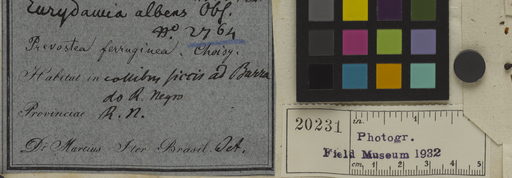 Eurydamia albens Obf.
No. 2764
Prevostea ferruginea. Choisy.
Habitat in collibus siccis ad Barra
do R. Negro
Provinciae R. N.
Dr Martius Iter Brasil. Det.
20231
in. 1
Photogr.
Field Museum 1932
cm 1 2 3 4 5